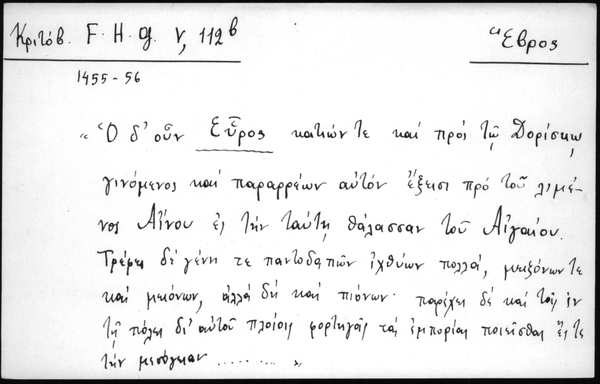 Κριτόβ. F. H. G. V, 112ᵇ
Ἕβρος
1455-56
"Ὁ δ' οὖν Εὖρος κατιών τε καὶ πρὸς τῷ Δορίσκῳ
γινόμενος καὶ παραρρέων αὐτὸν ἔξεισι πρὸ τοῦ λιμέ-
νος Αἴνου ἐς τὴν ταύτῃ θάλασσαν τοῦ Αἰγαίου.
Τρέφει δὲ γένη τε παντοδαπῶν ἰχθύων πολλά, μειζόνων τε
καὶ μειόνων, ἀλλὰ δὴ καὶ πιόνων· παρέχει δὲ καὶ τοῖς ἐν
τῇ πόλει δι' αὐτοῦ πλοίοις φορτηγοῖς τὰς ἐμπορίας ποιεῖσθαι ἔς τε
τὴν μεσόγειαν ........ "